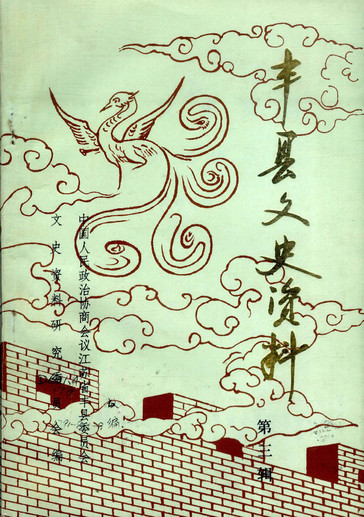 丰县文史资料
第三辑
中国人民政治协商会议江苏省丰县委员会
文史资料研究委员会编